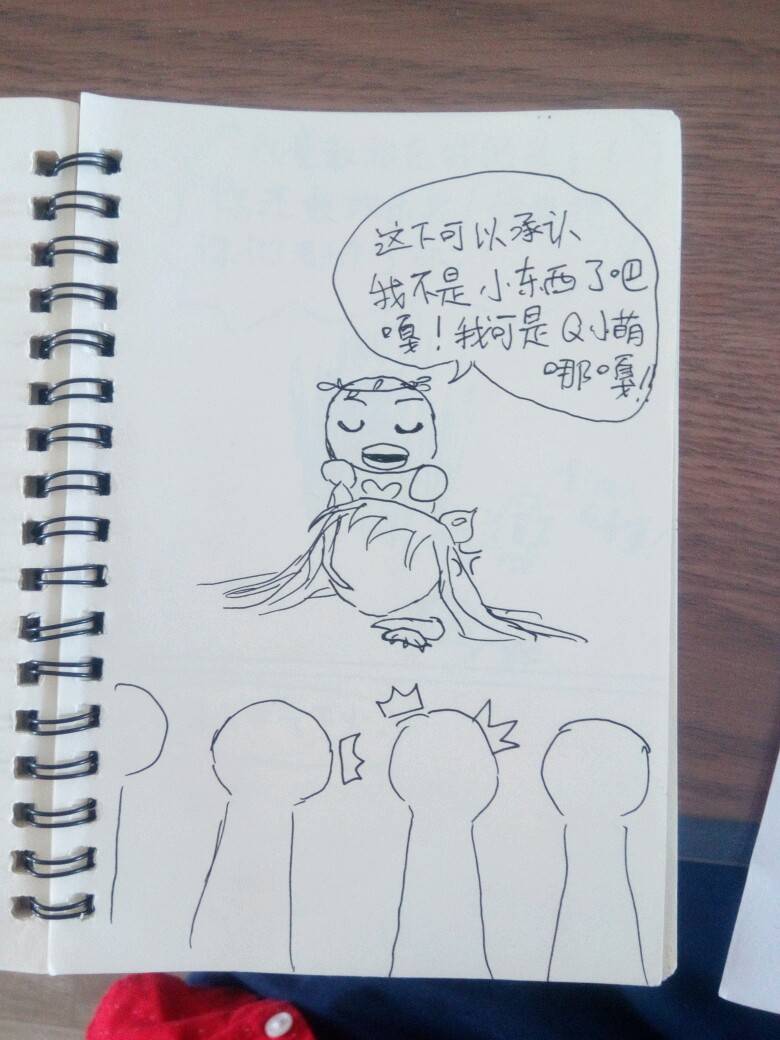 这下可以承认
我不是小东西了吧
嘎！我可是Q小萌
哪嘎!!